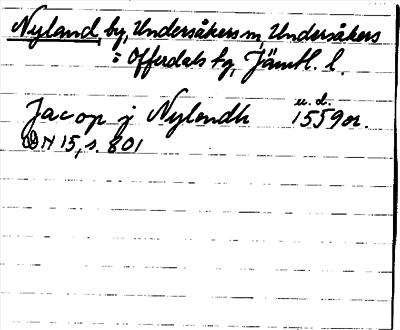 Nyland by, Undersåkers sn, Undersåkers
o. Offerdals tg, Jämtl. l.
u. d.
Jacop j Nylendh 1559 or.
DN 15, s. 801